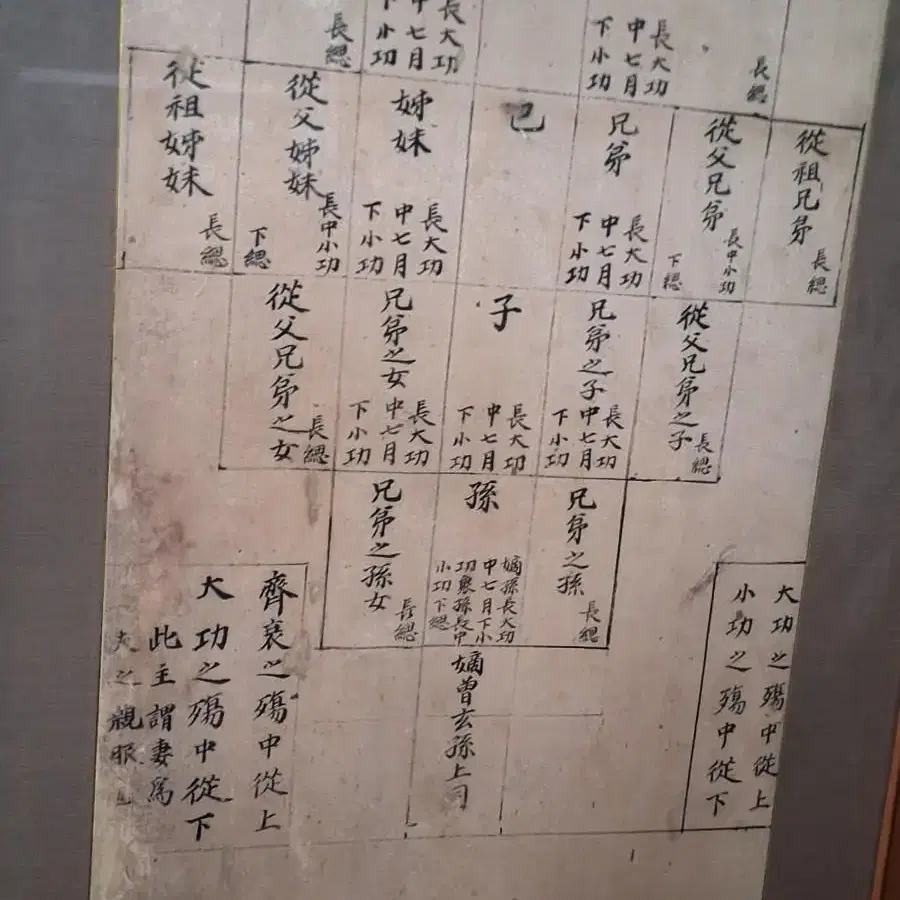 長緦
長大功
中七月
下小功
長大功
中七月
下小功
長緦
從祖兄弟
長緦
從父兄弟
長中小功
下緦
兄弟
長大功
中七月
下小功
己
姊妹
長大功
中七月
下小功
從父姊妹
長中小功
下緦
從祖姊妹
長緦
從父兄弟之子
長緦
兄弟之子
長大功
中七月
下小功
子
長大功
中七月
下小功
兄弟之女
長大功
中七月
下小功
從父兄弟之女
長緦
兄弟之孫
長緦
孫
嫡孫長大功
中七月下小
功衆孫長中
小功下緦
兄弟之孫女
長緦
大功之殤中從上
小功之殤中從下
嫡曾玄孫上同
齊衰之殤中從上
大功之殤中從下
此主謂妻爲
夫之親服也